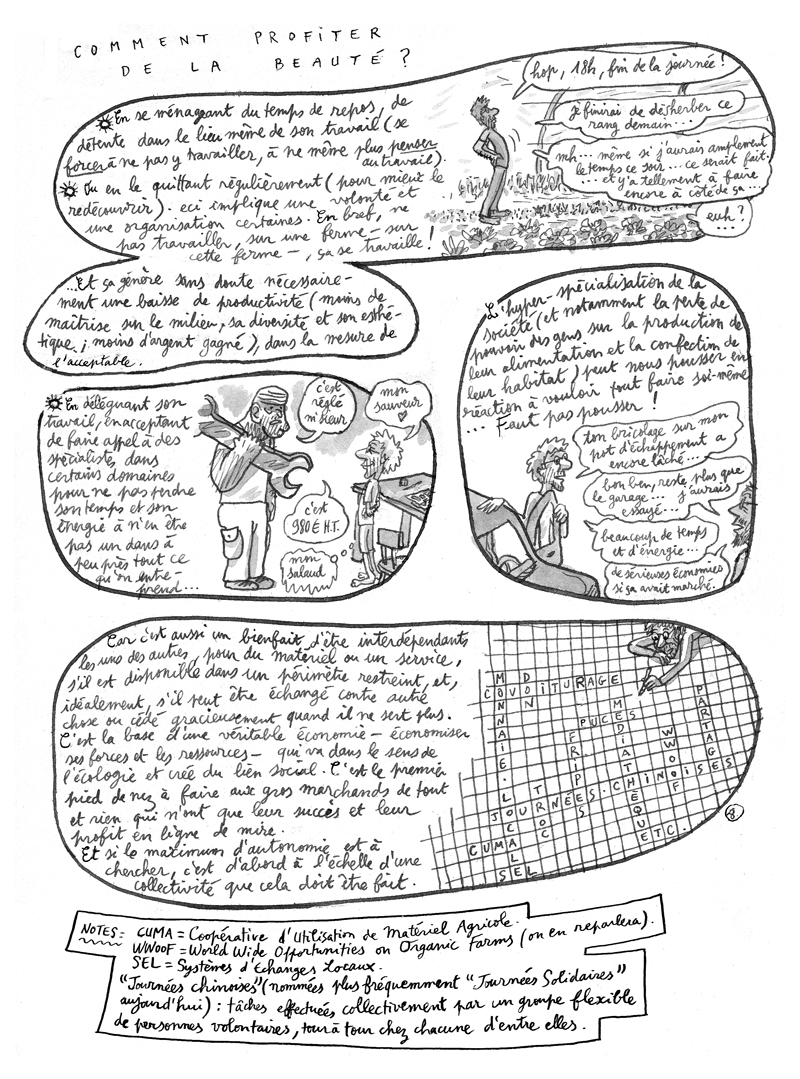 COMMENT PROFITER
DE LA BEAUTÉ ?
En se ménageant du temps de repos, de
détente dans le lieu même de son travail (se
forcer à ne pas y travailler, à ne même plus penser
au travail).
Ou en le quittant régulièrement (pour mieux le
redécouvrir). eci implique une volonté et
une organisation certaines. En bref, ne
pas travailler, sur une ferme – sur
cette ferme –, ça se travaille !
hop, 18h, fin de la journée !
je finirai de désherber ce
rang demain...
mh... même si j'aurais amplement
le temps ce soir... ce serait fait.
... et y'a tellement à faire
encore à côté de ça...
euh ?
...
...Et ça génère sans doute nécessaire-
ment une baisse de productivité (moins de
maîtrise sur le milieu, sa diversité et son esthé-
tique ; moins d'argent gagné), dans la mesure de
l'acceptable.
En déléguant son
travail, en acceptant
de faire appel à des
spécialistes dans
certains domaines
pour ne pas perdre
son temps et son
énergie à n'en être
pas un dans à
peu près tout ce
qu'on entre-
prend...
c'est
réglé
m'sieur
mon
sauveur
c'est
980 € H.T.
mon
salaud
L'hyper-spécialisation de la
société (et notamment la perte de
pouvoir des gens sur la production de
leur alimentation et la confection de
leur habitat) peut nous pousser en
réaction à vouloir tout faire soi-même
... Faut pas pousser !
ton bricolage sur mon
pot d'échappement a
encore lâché...
bon ben, reste plus que
le garage... j'aurais
essayé...
beaucoup de temps
et d'énergie...
de sérieuses économies
si ça avait marché.
Car c'est aussi un bienfait d'être interdépendants
les uns des autres, pour du matériel ou un service,
s'il est disponible dans un périmètre restreint, et,
idéalement, s'il peut être échangé contre autre
chose ou cédé gracieusement quand il ne sert plus.
C'est la base d'une véritable économie – économiser
ses forces et les ressources – qui va dans le sens de
l'écologie et créé du lien social. C'est le premier
pied de nez à faire aux gros marchands de tout
et rien qui n'ont que leur succès et leur
profit en ligne de mire.
Et si le maximum d'autonomie est à
chercher, c'est d'abord à l'échelle d'une
collectivité que cela doit être fait.
COVOITURAGE
MONNAIE.LOCALE
DON
PUCES
MÉDIATHÈQUE
FRIPES
WWOOF
PARTAGE
TROC
JOURNÉES.CHINOISES
CUMA
ETC.
SEL
8
NOTES: CUMA = Coopérative d'Utilisation de Matériel Agricole.
WWOOF = World Wide Opportunities on Organic Farms (on en reparlera).
SEL = Systèmes d'Echanges Locaux.
"Journées chinoises" (nommées plus fréquemment "Journées Solidaires"
aujourd'hui) : tâches effectuées collectivement par un groupe flexible
de personnes volontaires, tour à tour chez chacune d'entre elles.